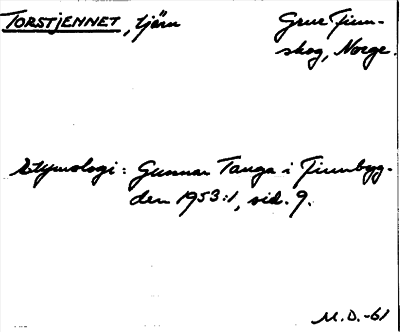 TORSTJENNET, tjärn
Grue Finn-
skog, Norge.
Etymologi: Gunnar Tanga i Finnbyg-
den 1953:1, sid. 9.
M.D.-61